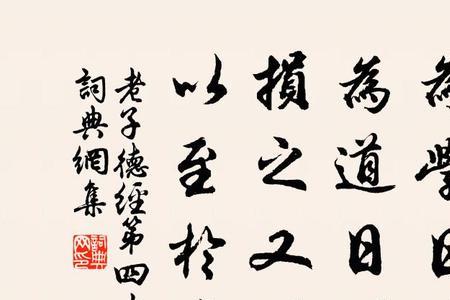 為學日
為道日
損之又
以至於
老子德經第四十
詞典網集
詞典網印